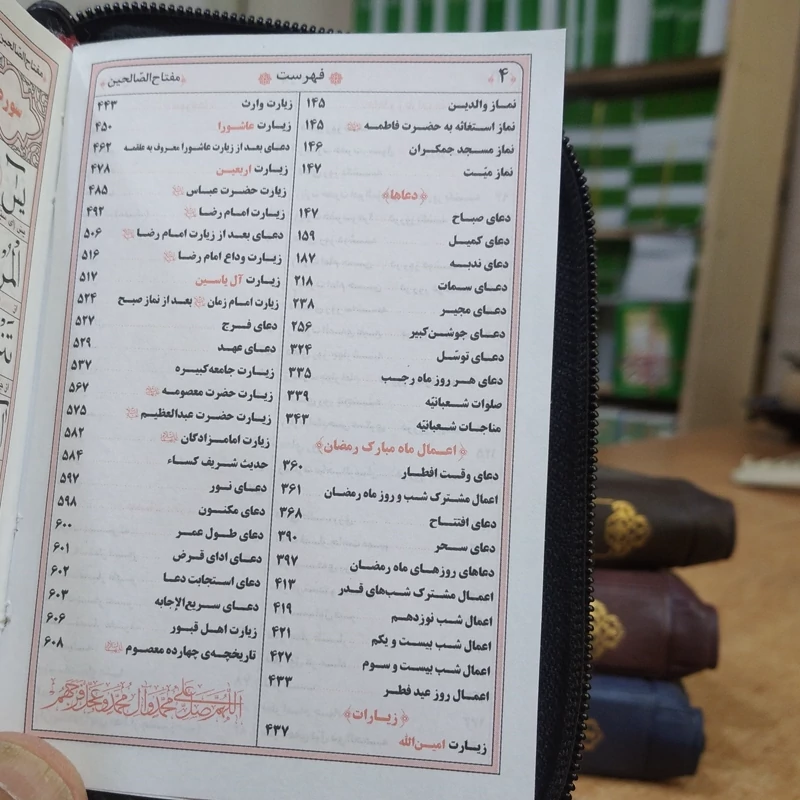 ۴
فهرست
مفتاح الصّالحین
نماز والدین ۱۴۵
نماز استغاثه به حضرت فاطمه ۱۴۵
نماز مسجد جمکران ۱۴۶
نماز میّت ۱۴۷
﴿دعاها﴾
دعای صباح ۱۴۷
دعای کمیل ۱۵۹
دعای ندبه ۱۸۷
دعای سمات ۲۱۸
دعای مجیر ۲۳۸
دعای جوشن‌کبیر ۲۵۶
دعای توسّل ۳۲۴
دعای هر روز ماه رجب ۳۳۵
صلوات شعبانیّه ۳۳۹
مناجات شعبانیّه ۳۴۳
﴿اعمال ماه مبارک رمضان﴾
دعای وقت افطار ۳۶۰
اعمال مشترک شب و روز ماه رمضان ۳۶۱
دعای افتتاح ۳۶۸
دعای سحر ۳۹۰
دعاهای روزهای ماه رمضان ۳۹۷
اعمال مشترک شب‌های قدر ۴۱۳
اعمال شب نوزدهم ۴۱۹
اعمال شب بیست و یکم ۴۲۱
اعمال شب بیست و سوم ۴۲۷
اعمال روز عید فطر ۴۳۳
﴿زیارات﴾
زیارت امین‌الله ۴۳۷
زیارت وارث ۴۴۳
زیارت عاشورا ۴۵۰
دعای بعد از زیارت عاشورا معروف به علقمه ۴۶۲
زیارت اربعین ۴۷۸
زیارت حضرت عباس ۴۸۵
زیارت امام رضا ۴۹۲
دعای بعد از زیارت امام رضا ۵۰۶
زیارت وداع امام رضا ۵۱۶
زیارت آل یاسین ۵۱۷
زیارت امام زمان بعد از نماز صبح ۵۲۴
دعای فرج ۵۲۷
دعای عهد ۵۲۹
زیارت جامعه‌کبیره ۵۳۷
زیارت حضرت معصومه ۵۶۷
زیارت حضرت عبدالعظیم ۵۷۵
زیارت امامزادگان ۵۸۲
حدیث شریف کساء ۵۸۴
دعای نور ۵۹۷
دعای مکنون ۵۹۸
دعای طول عمر ۶۰۰
دعای ادای قرض ۶۰۱
دعای استجابت دعا ۶۰۲
دعای سریع‌الإجابه ۶۰۳
زیارت اهل قبور ۶۰۶
تاریخچه‌ی چهارده معصوم ۶۰۸
اللهم صل علی محمد و آل محمد و عجل فرجهم